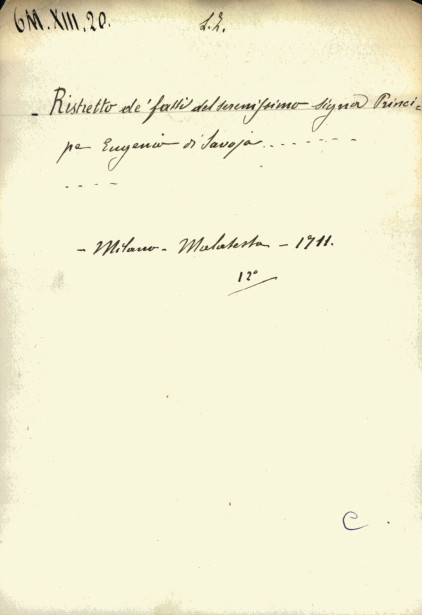 6M.XIII.20.
L.Z.
- Ristretto de' fatti del serenissimo signor Princi=
pe Eugenio di Savoja. - - - - - - -
- - - -
- Milano - Malatesta - 1711.
12º
C